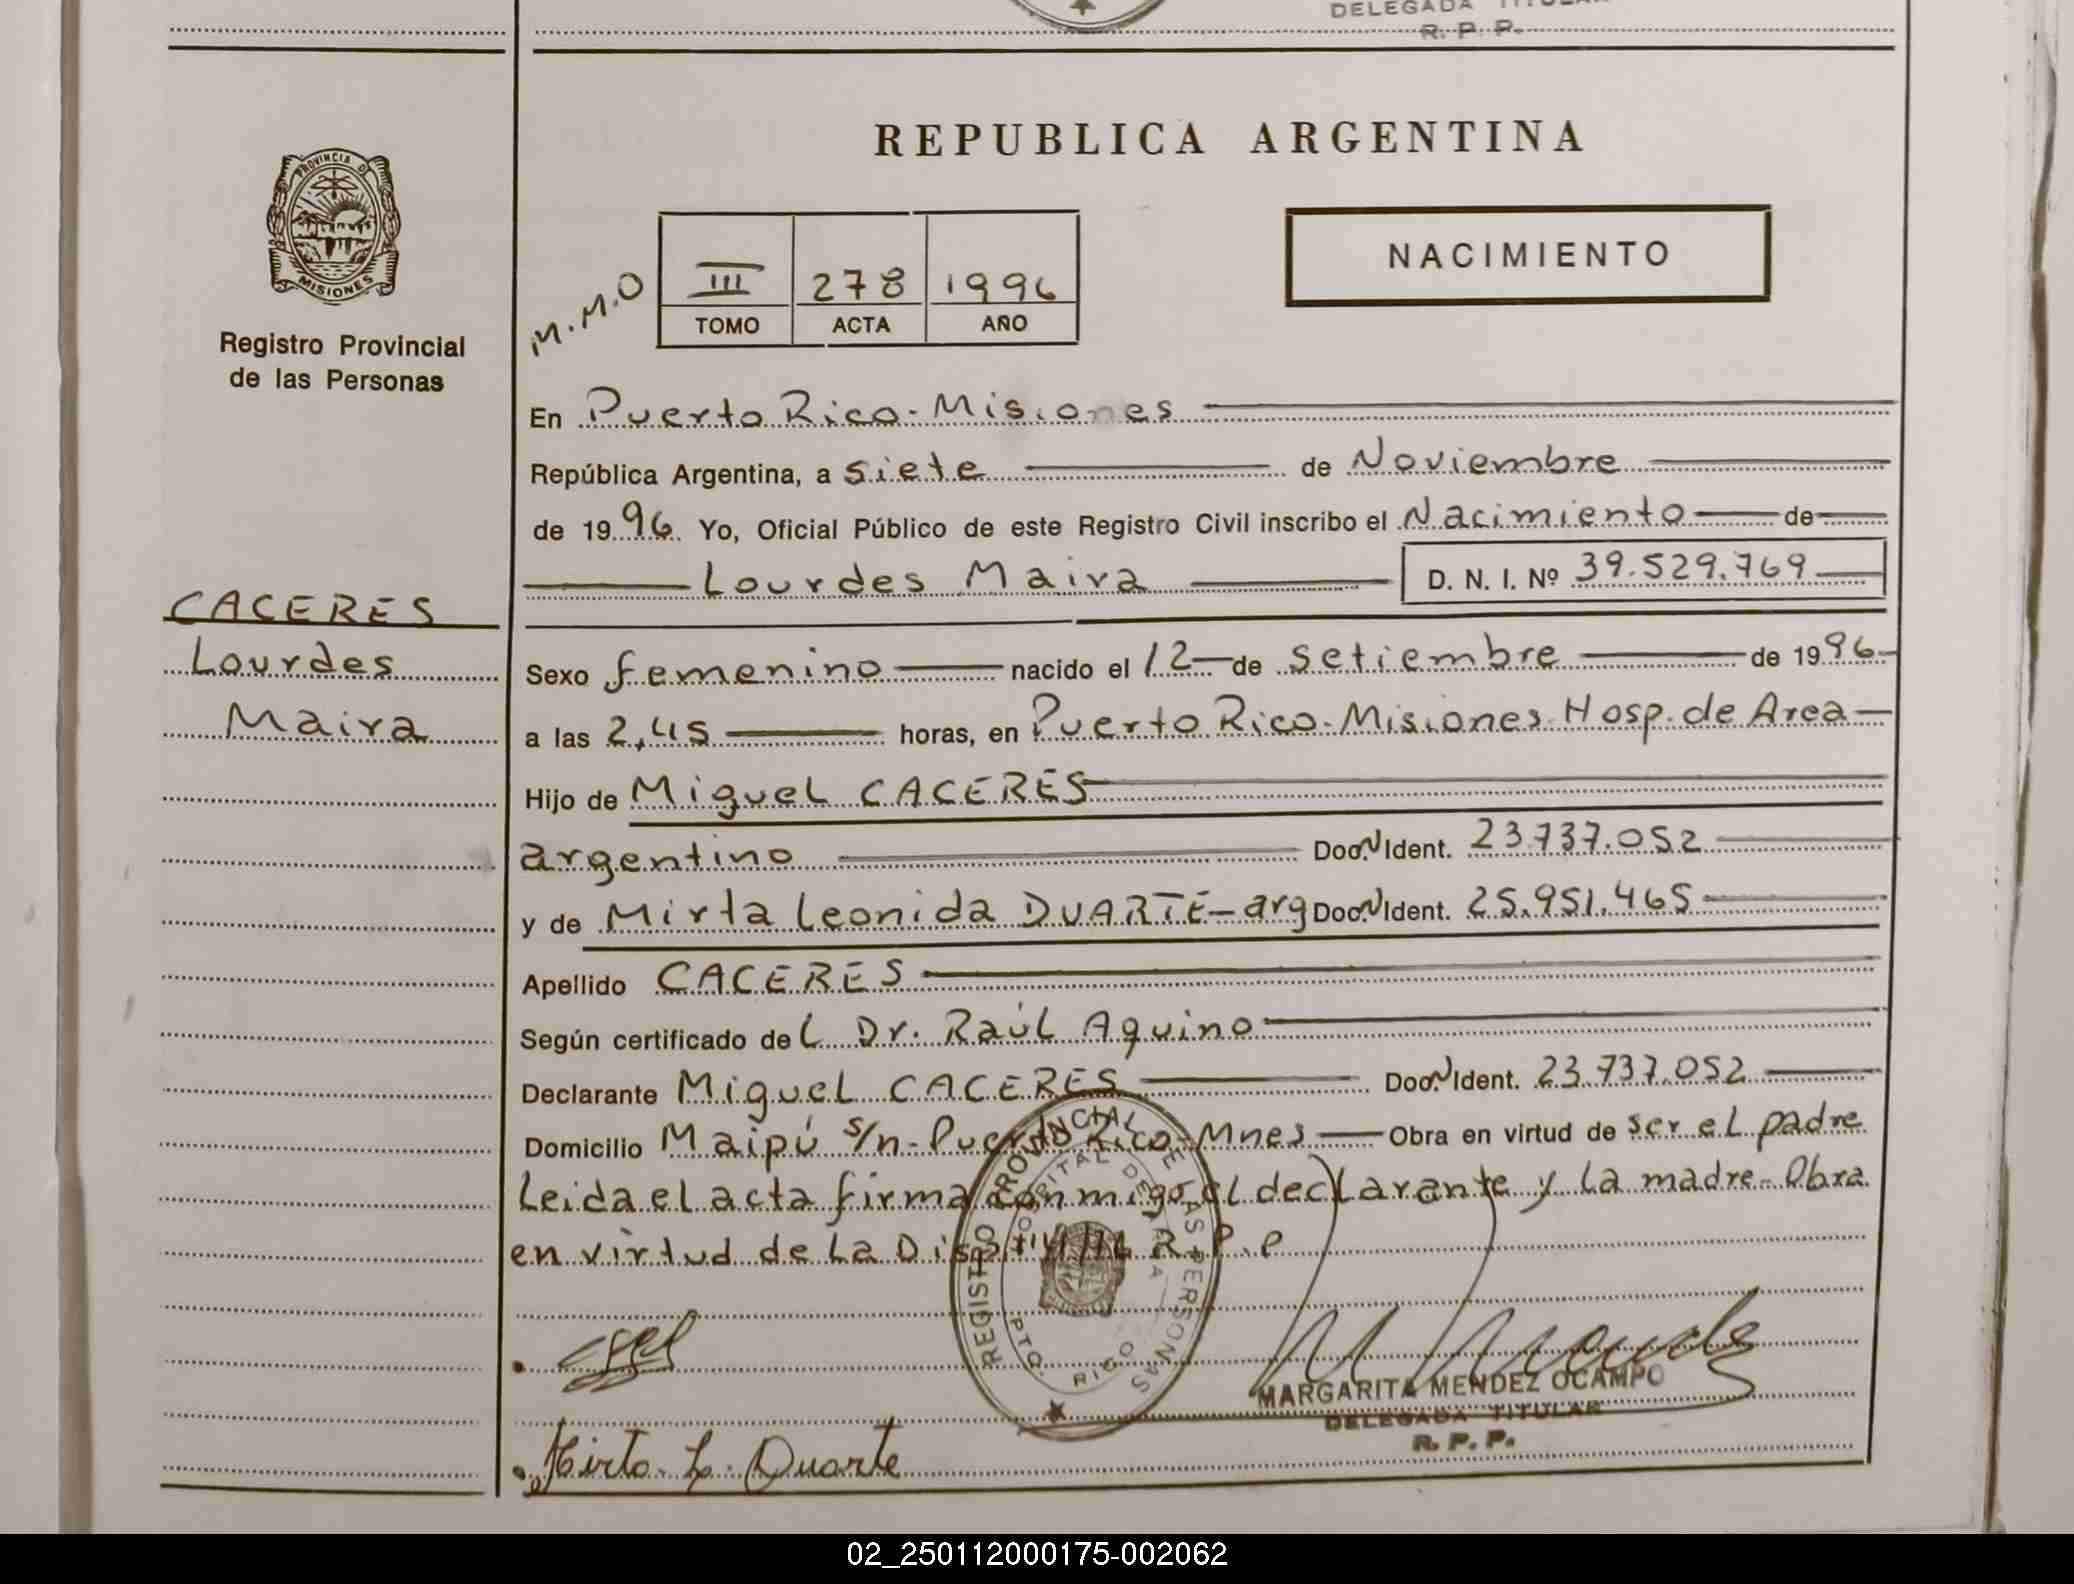 DELEGADA TITULAR
R. P. P.
PROVINCIA D
MISIONES
Registro Provincial
de las Personas
REPUBLICA ARGENTINA
M.M.O
III 278 1996
TOMO ACTA AÑO
NACIMIENTO
En Puerto Rico - Misiones
República Argentina, a siete de Noviembre
de 1996 Yo, Oficial Público de este Registro Civil inscribo el Nacimiento de
Lourdes Maira D. N. I. Nº 39.529.769
CACERES
Lourdes
Maira
Sexo femenino nacido el 12 de setiembre de 1996
a las 2,45 horas, en Puerto Rico - Misiones Hosp. de Area
Hijo de Miguel CACERES
argentino Doc. N Ident. 23.737.052
y de Mirta Leonida DUARTE - arg Doc. N Ident. 25.951.465
Apellido CACERES
Según certificado del Dr. Raúl Aquino
Declarante Miguel CACERES Doc. N Ident. 23.737.052
Domicilio Maipú s/n - Puerto Rico - Mnes Obra en virtud de ser el padre
Leida el acta firma conmigo el declarante y la madre - Obra
en virtud de la R.P.P
REGISTRO PROVINCIAL DE LAS PERSONAS
HOSPITAL DE AREA
PTO. RICO
MARGARITA MENDEZ OCAMPO
DELEGADA TITULAR
R. P. P.
Mirta L. Duarte
02_250112000175-002062